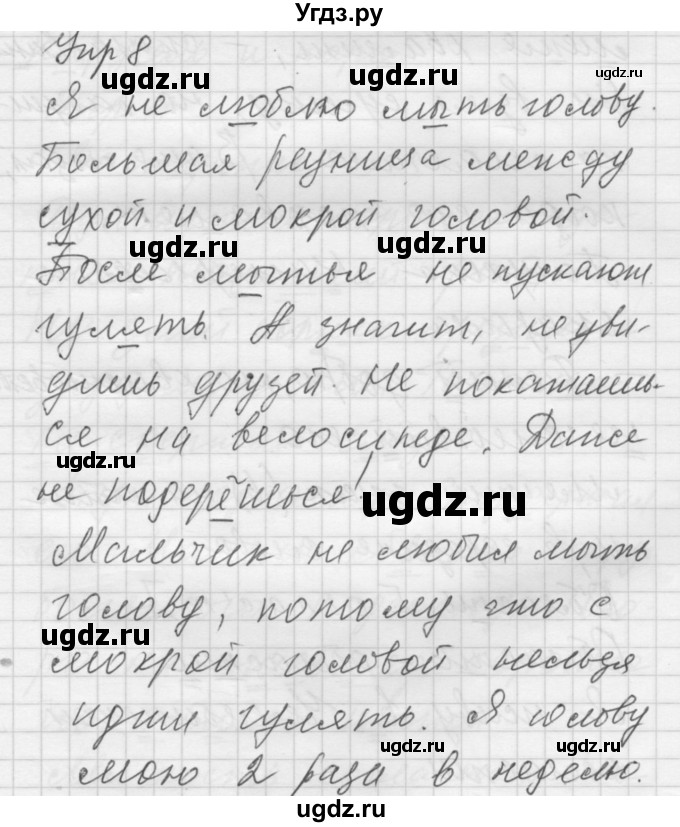 Угдз.ру
Упр 8
Я не люблю мыть голову.
Большая разница между
сухой и мокрой головой.
После мытья не пускают
гулять. А значит, не уви-
дишь друзей. Не покатаешь-
ся на велосипеде. Даже
не подерёшься!
Мальчик не любил мыть
голову, потому что с
мокрой головой нельзя
идти гулять. Я голову
мою 2 раза в неделю.
ugdz.ru
ugdz.ru
ugdz.ru
ugdz.ru
ugdz.ru
ugdz.ru
ugdz.ru
ugdz.ru
ugdz.ru
ugdz.ru
ugdz.ru